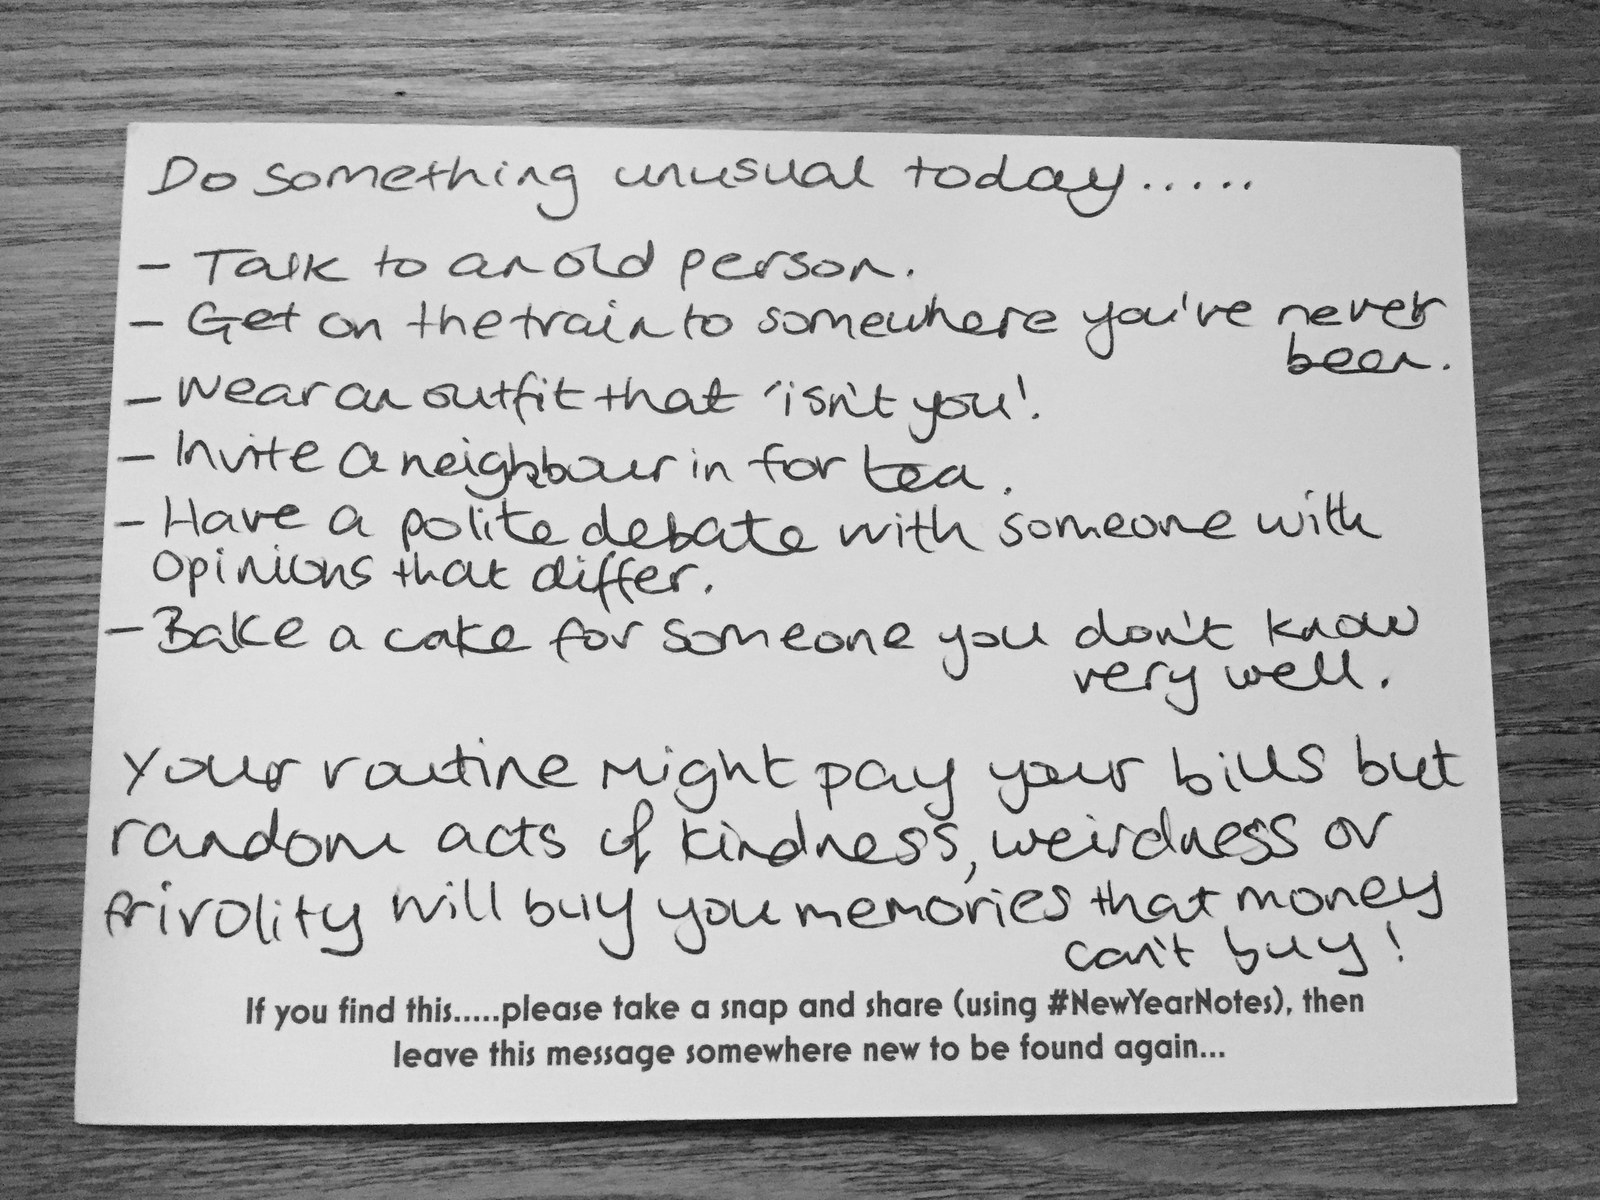 Do something unusual today.....
- Talk to an old person.
- Get on the train to somewhere you've never
been.
- Wear an outfit that 'isn't you'.
- Invite a neighbour in for tea.
- Have a polite debate with someone with
opinions that differ.
- Bake a cake for someone you don't know
very well.
Your routine might pay your bills but
random acts of kindness, weirdness or
frivolity will buy you memories that money
can't buy!
If you find this.....please take a snap and share (using #NewYearNotes), then
leave this message somewhere new to be found again...